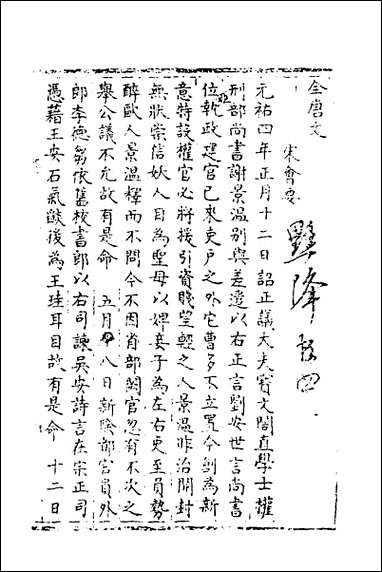 全唐文 宋會要
黜降拾四
元祐四年正月十二日詔正議大夫寶文閣直學士權
刑部尚書謝景溫別與差遣以右正言劉安世言尚書
位亞執政建官已來吏戶之外它曹多不立置今創為新
意特設權官必將援引資賤望輕之人景溫昨治開封
無狀崇信妖人目為聖母以婢妾子為左右吏至員勢
醉毆人景溫釋而不問今不因省部闕官忽有不次之
舉公議不允故有是命 五月八日新除都官員外
郎李德芻依舊校書郎以右司諫吳安詩言在宗正司
憑藉王安石氣燄後為王珪耳目故有是命 十二日